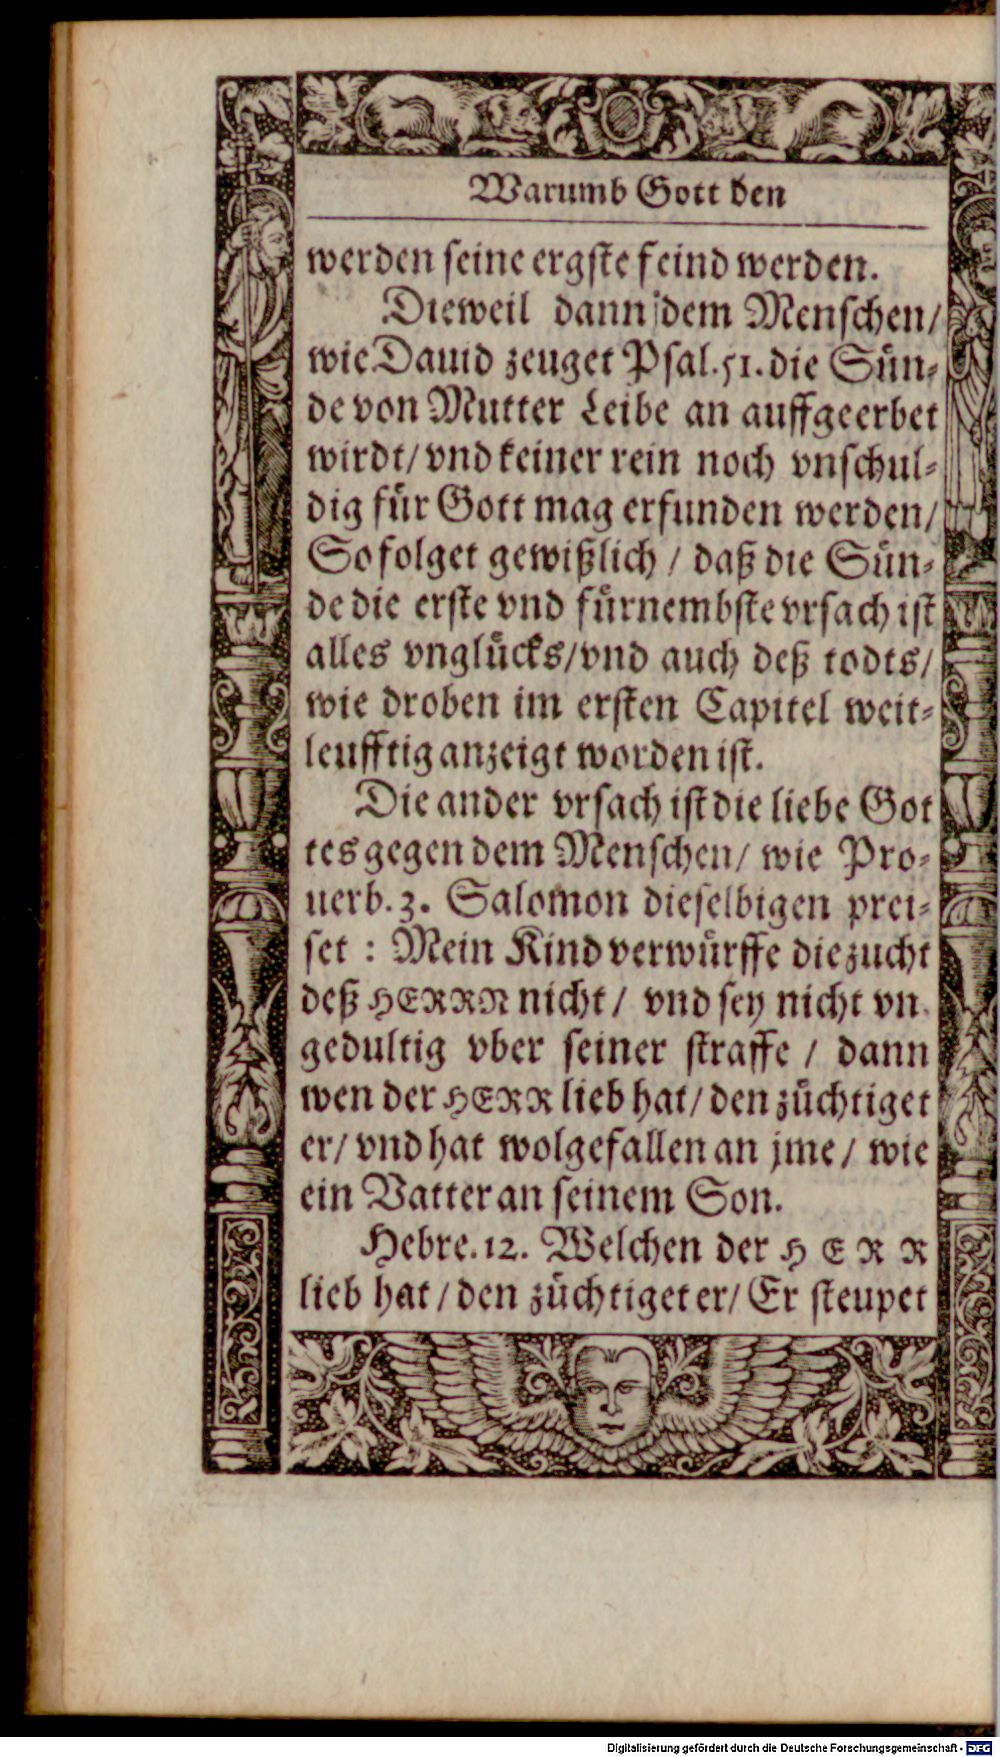 Warumb Gott den
werden seine ergste feind werden.
Dieweil dann dem Menschen/
wie Dauid zeuget Psal. 51. die Sün-
de von Mutter Leibe an auffgeerbet
wirdt/ vnd keiner rein noch vnschul-
dig für Gott mag erfunden werden/
So folget gewißlich / daß die Sün-
de die erste vnd fürnembste vrsach ist
alles vnglücks/ vnd auch deß todts/
wie droben im ersten Capitel weit-
leufftig anzeigt worden ist.
Die ander vrsach ist die liebe Got
tes gegen dem Menschen/ wie Pro-
uerb. 3. Salomon dieselbigen prei-
set : Mein Kind verwürffe die zucht
deß HERRN nicht/ vnd sey nicht vn
gedultig vber seiner straffe / dann
wen der HERR lieb hat/ den züchtiget
er/ vnd hat wolgefallen an jme/ wie
ein Vatter an seinem Son.
Hebre. 12. Welchen der HERR
lieb hat/ den züchtiget er/ Er steupet
Digitalisierung gefördert durch die Deutsche Forschungsgemeinschaft - DFG